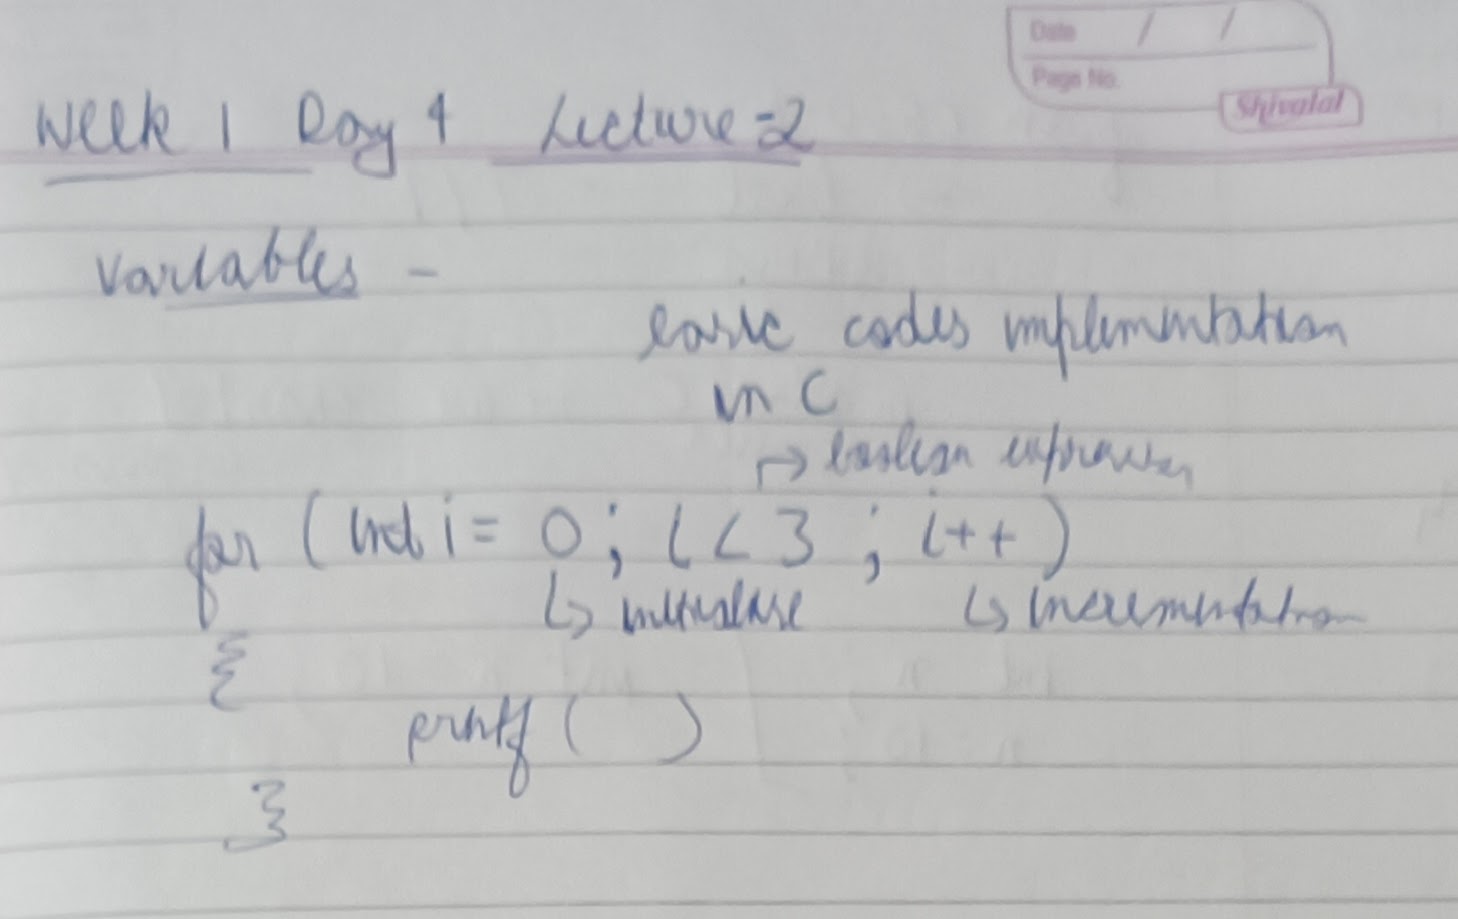 Date / /
Page No.
Shivalal
Week 1 Day 4 Lecture-2
Variables -
basic codes implementation
in C
↳ boolean expression
for (int i = 0; i < 3 ; i++)
↳ initialise ↳ incrementation
{
printf ( )
}